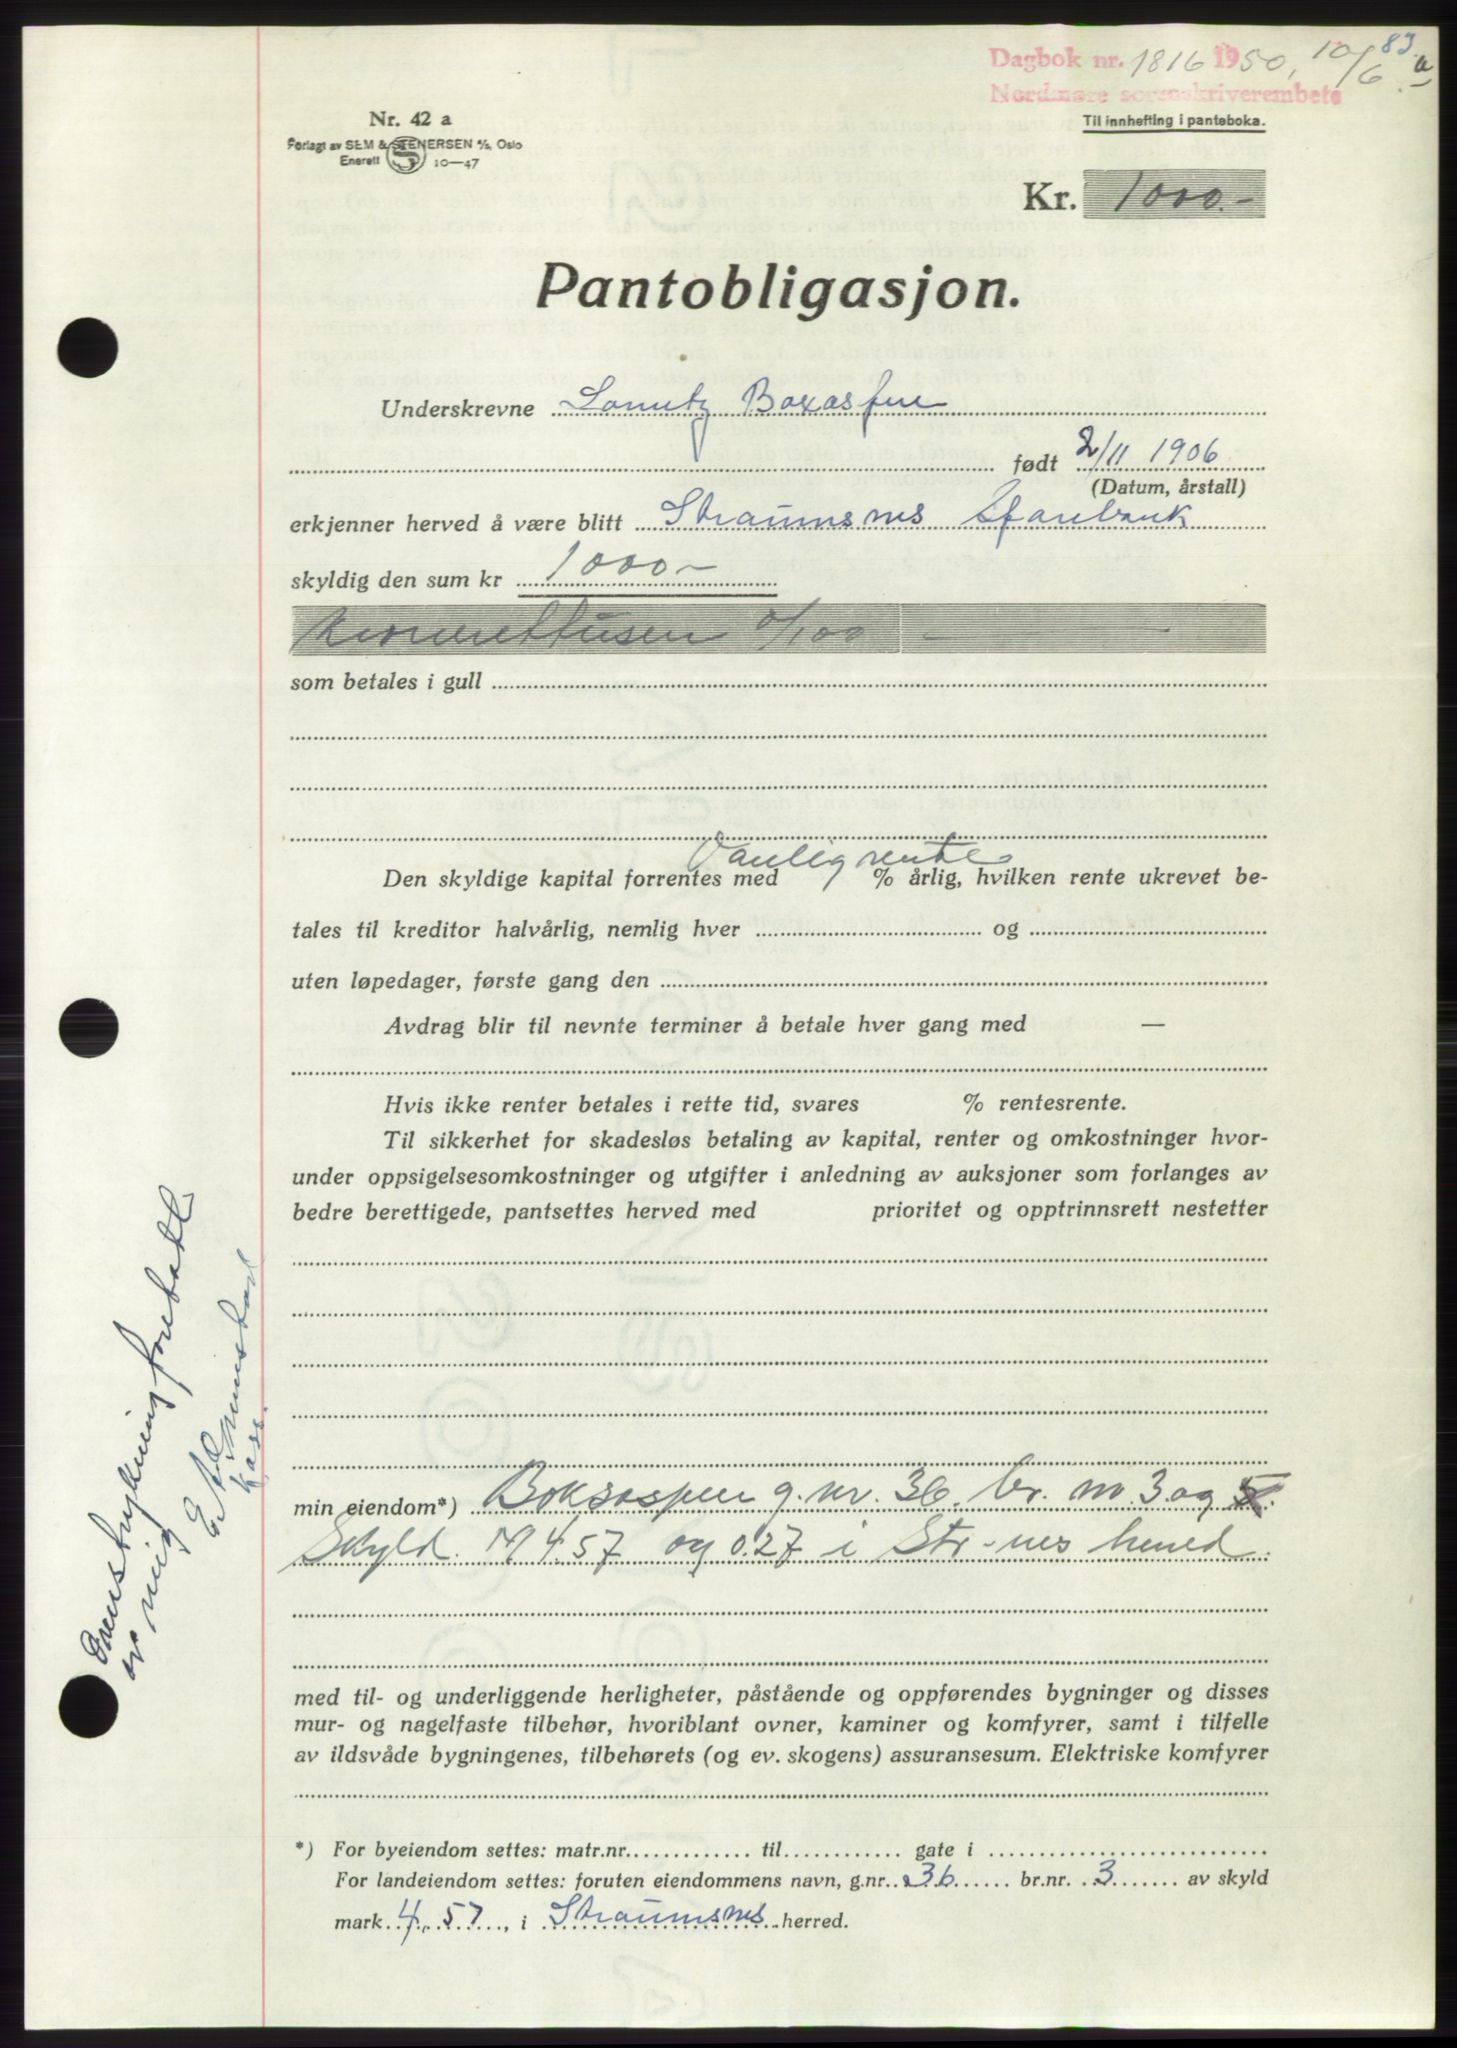 Dagbok nr. 1816 1950, 10/6 83
Nordmøre sorenskriverembete
Til innhefting i panteboka.
Nr. 42 a
Forlagt av SEM & STENERSEN A/S, Oslo
Enerett S 10—47
Kr. 1000.-
Pantobligasjon.
Underskrevne
født 2/11 1906
(Datum, årstall)
erkjenner herved å være blitt Straumsnes Sparebank
skyldig den sum kr 1000-
0/100 —
som betales i gull
Vanlig rente
Den skyldige kapital forrentes med % årlig, hvilken rente ukrevet be-
tales til kreditor halvårlig, nemlig hver og
uten løpedager, første gang den
Avdrag blir til nevnte terminer å betale hver gang med —
Hvis ikke renter betales i rette tid, svares % rentesrente.
Til sikkerhet for skadesløs betaling av kapital, renter og omkostninger hvor-
under oppsigelsesomkostninger og utgifter i anledning av auksjoner som forlanges av
bedre berettigede, pantsettes herved med prioritet og opptrinnsrett nestetter
min eiendom*) Boksaspen g. nr. 36. br. nr 3 og 5.
Skyld. M 4.57 og 0.27 i Str-nes herred.
med til- og underliggende herligheter, påstående og oppførendes bygninger og disses
mur- og nagelfaste tilbehør, hvoriblant ovner, kaminer og komfyrer, samt i tilfelle
av ildsvåde bygningenes, tilbehørets (og ev. skogens) assuransesum. Elektriske komfyrer
*) For byeiendom settes: matr.nr. til gate i
For landeiendom settes: foruten eiendommens navn, g.nr. 36 br.nr. 3 av skyld
mark 4,57, i Straumsnes herred.
Overstrykning foretatt
av meg